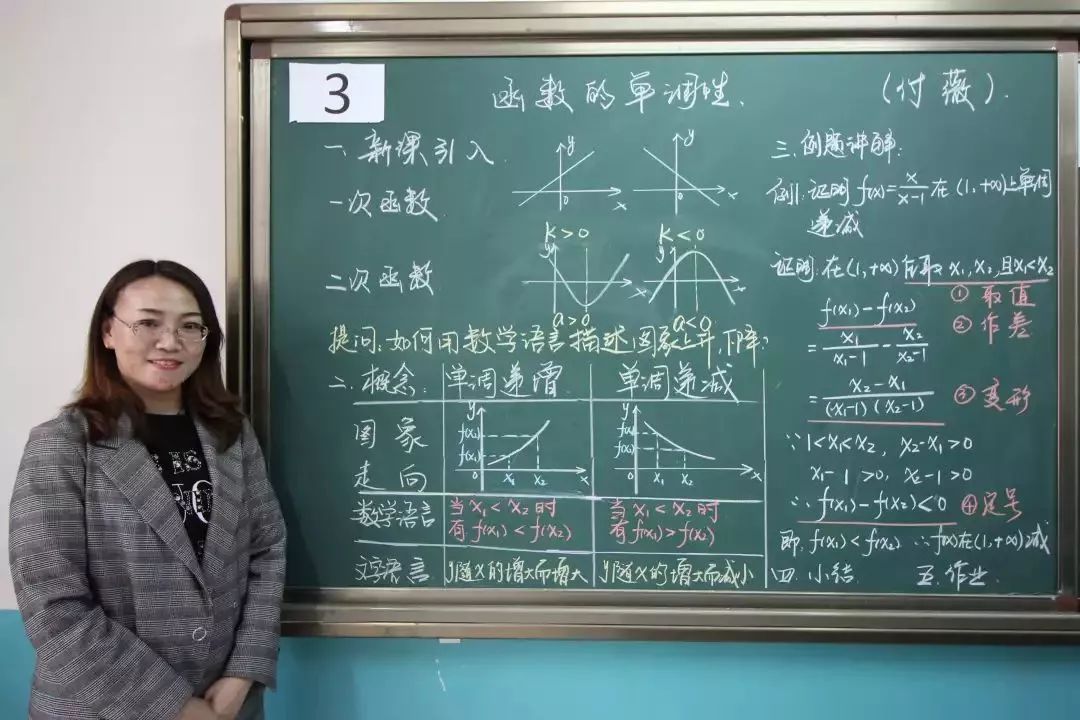 3
函数的单调性.
(付薇).
一.新课引入.
一次函数.
y
x
0
K>0
y
x
0
K<0
二次函数
y
a>0
y
a<0
提问:如何用数学语言描述图象上升,下降?
二.概念: 单调递增. 单调递减
图象走向
y
f(x₂)
f(x₁)
0 x₁ x₂ x
y
f(x₁)
f(x₂)
0 x₁ x₂ x
数学语言
当 x₁<x₂ 时
有 f(x₁)<f(x₂)
当 x₁<x₂ 时
有 f(x₁)>f(x₂)
文字语言 y随x的增大而增大 y随x的增大而减小
三.例题讲解:
例1.证明 f(x)=x/(x-1) 在 (1,+∞)上单调
递减
证明:在(1,+∞)任取 x₁,x₂,且x₁<x₂
① 取值
f(x₁)-f(x₂) ② 作差
=x₁/(x₁-1)-x₂/(x₂-1)
=(x₂-x₁)/((x₁-1)(x₂-1)) ③ 变形
∵1<x₁<x₂, x₂-x₁>0
x₁-1>0, x₂-1>0
∴f(x₁)-f(x₂)<0 ④定号
即.f(x₁)<f(x₂) ∴f(x)在(1,+∞)减
四.小结. 五.作业.